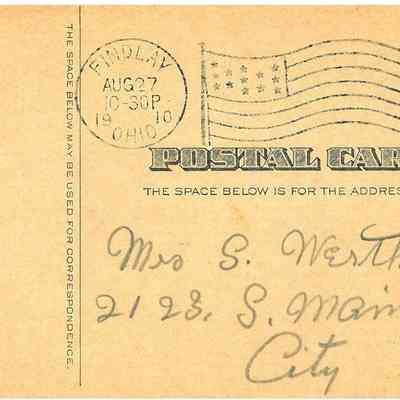 THE SPACE BELOW MAY BE USED FOR CORRESPONDENCE.
FINDLAY
AUG 27
10-30P
19 10
OHIO
POSTAL CAR
THE SPACE BELOW IS FOR THE ADDRES
Mrs S. Werth
2123, S. Main
City